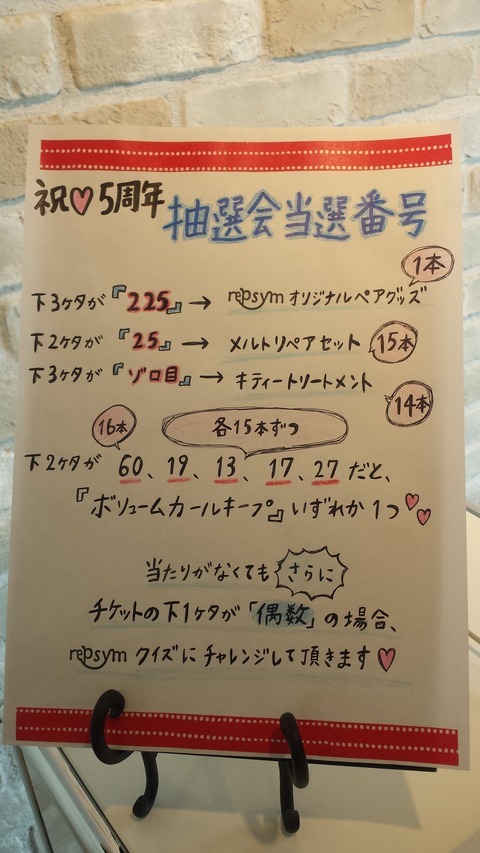 祝♡5周年 抽選会当選番号
1本
下3ケタが『225』→ repsym オリジナルペアグッズ
下2ケタが『25』→ メルトリペアセット 15本
下3ケタが『ゾロ目』→ キティートリートメント
14本
16本 各15本ずつ
下2ケタが 60、19、13、17、27 だと、
『ボリュームカールキープ』いずれか1つ♡♡
当たりがなくても さらに
チケットの下1ケタが「偶数」の場合、
repsym クイズにチャレンジして頂きます♡